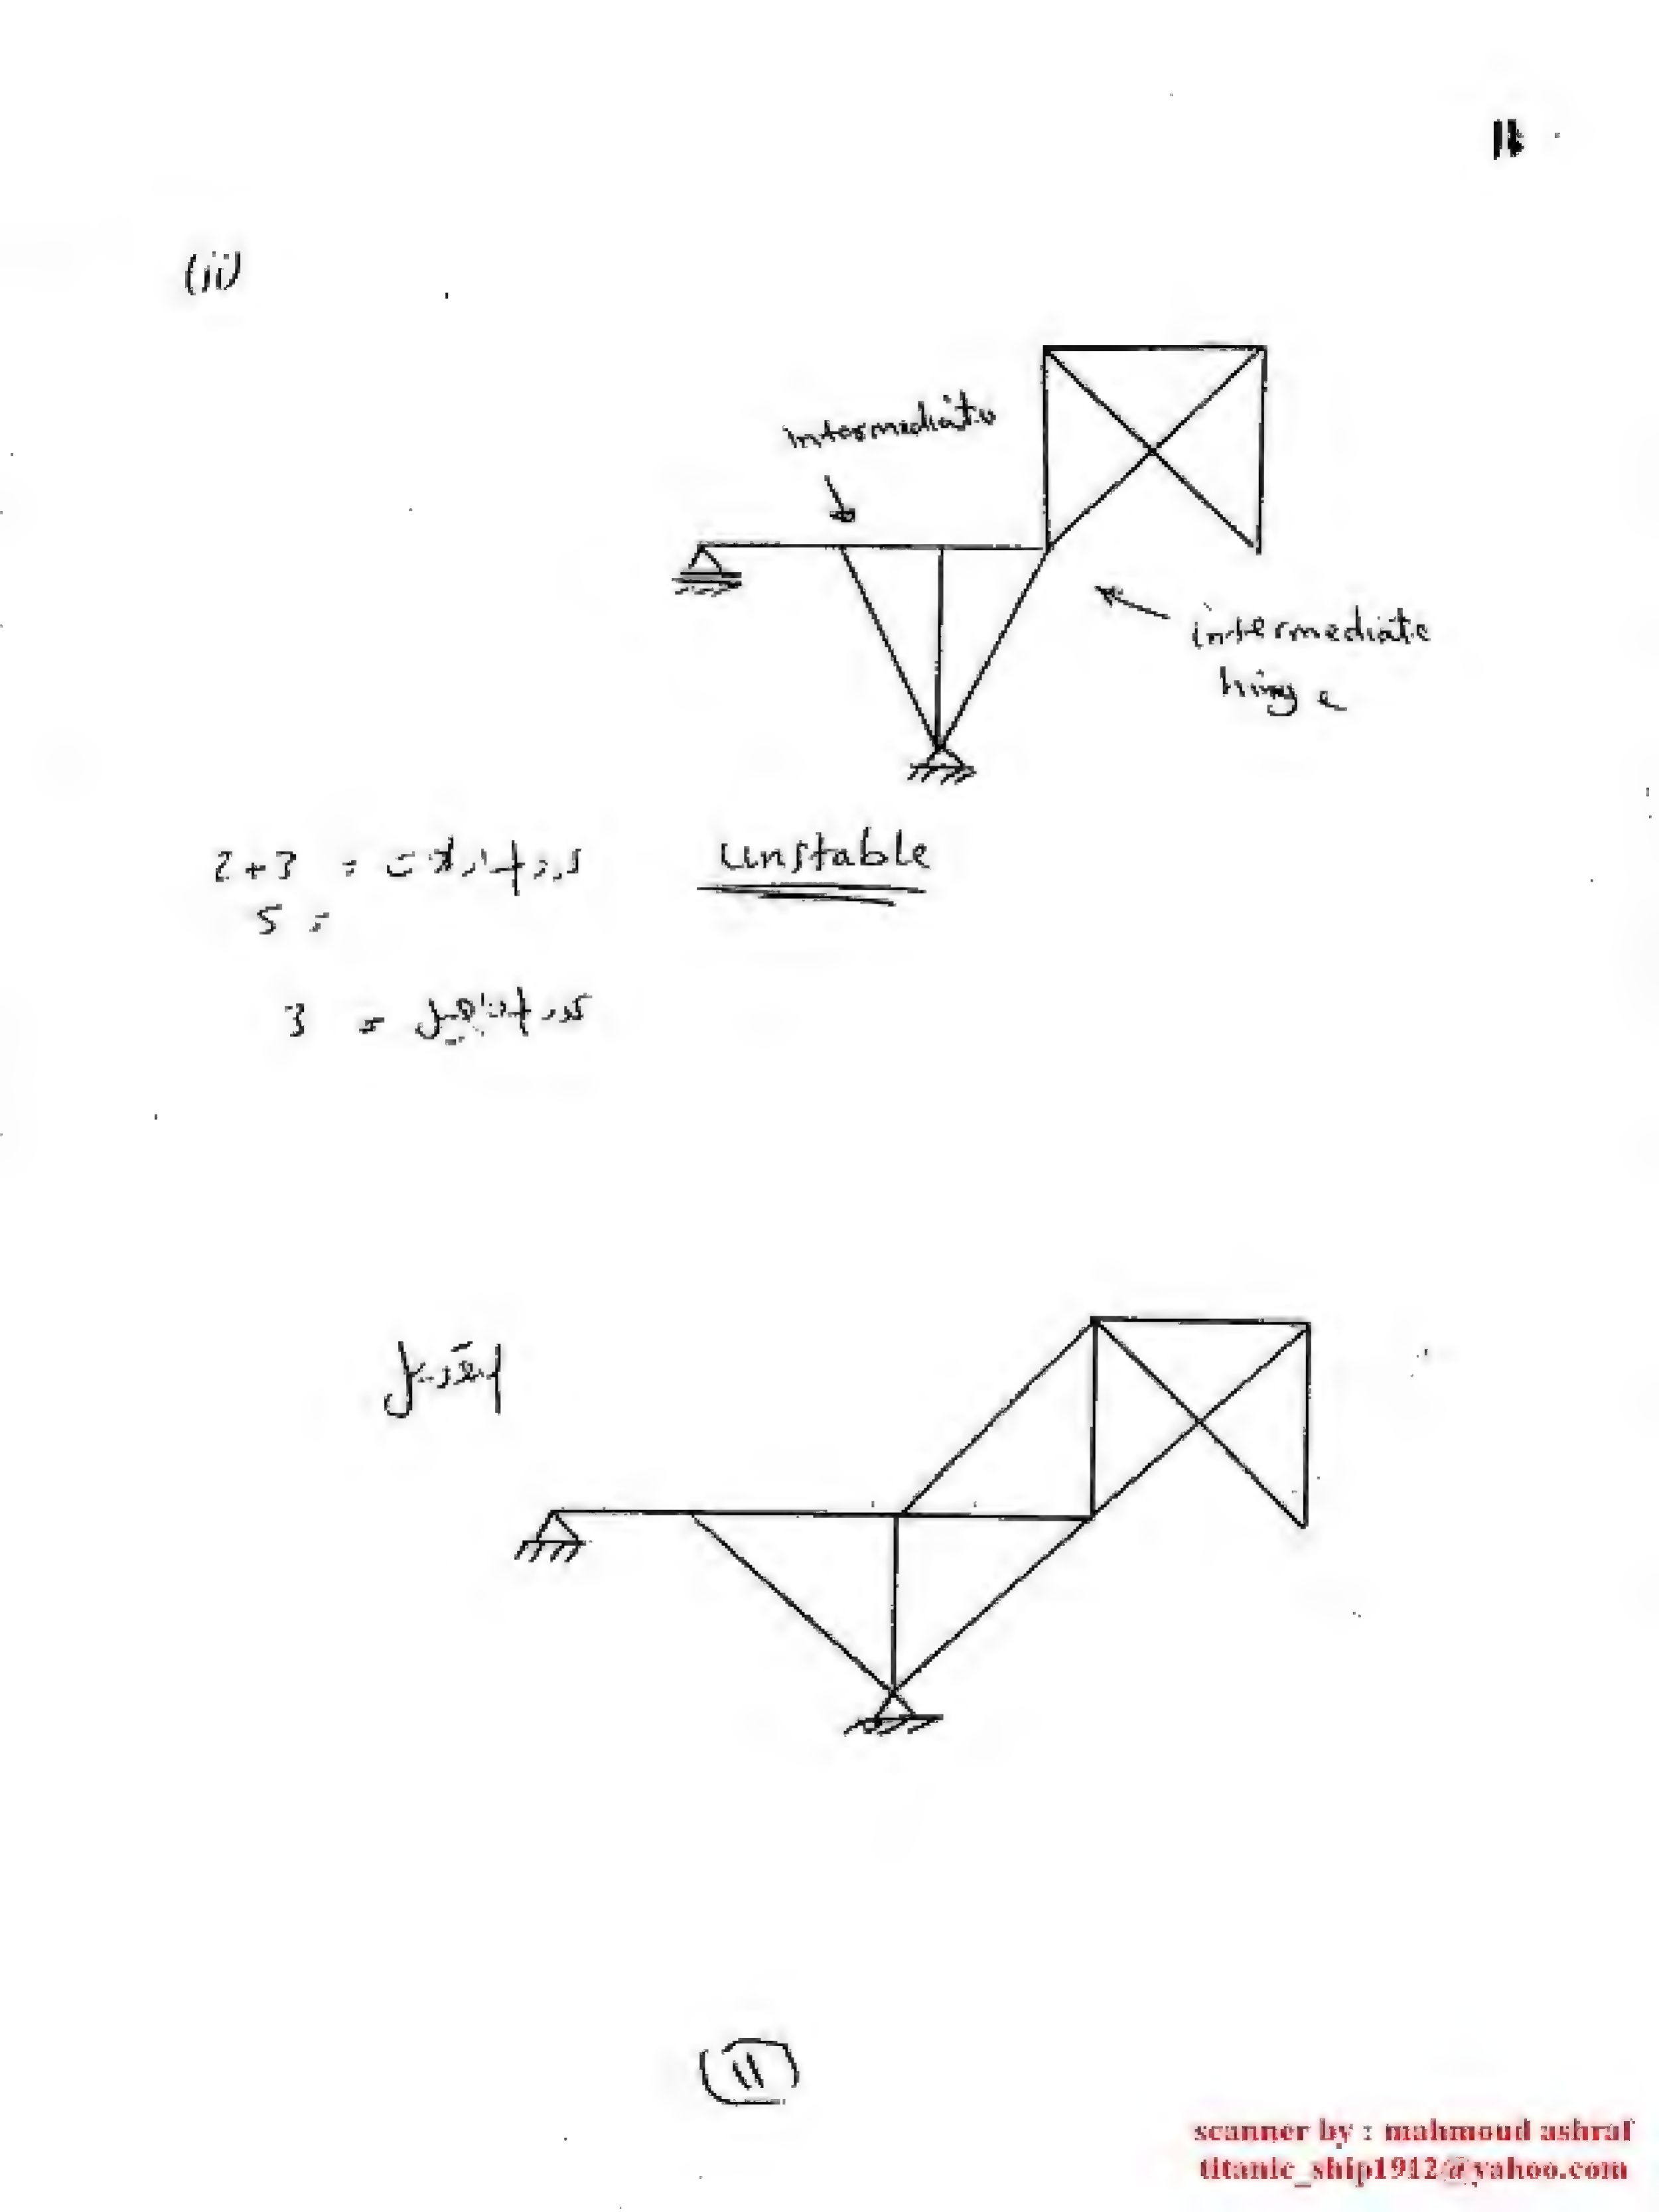 11
(ii)
intermediate
intermediate
hinge
2 + 3 = عدد المعادلات
unstable
5 =
3 = عدد المجاهيل
التعديل
(11)
scanner by : mahmoud ashraf
titanic_ship1912@yahoo.com